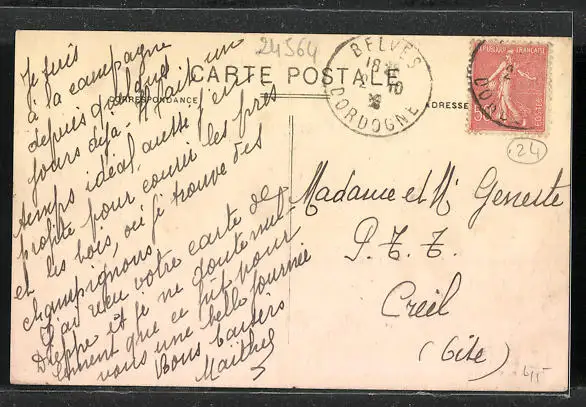 24564
CARTE POSTALE
CORRESPONDANCE
ADRESSE
BELVÈS
18
2 10
DORDOGNE
REPUBLIQUE FRANÇAISE
POSTES
24
Je suis
à la campagne
depuis quelques
jours déjà. Il fait un
temps idéal aussi j'en
profite pour courir les prés
et les bois, où je trouve des
champignons.
J'ai reçu votre carte de
Dieppe et je ne doute nul-
lement que ce fut pour
vous une belle journée
Bons baisers
Madame et Mr Geneste
P.T.T.
Creil
(Oise)